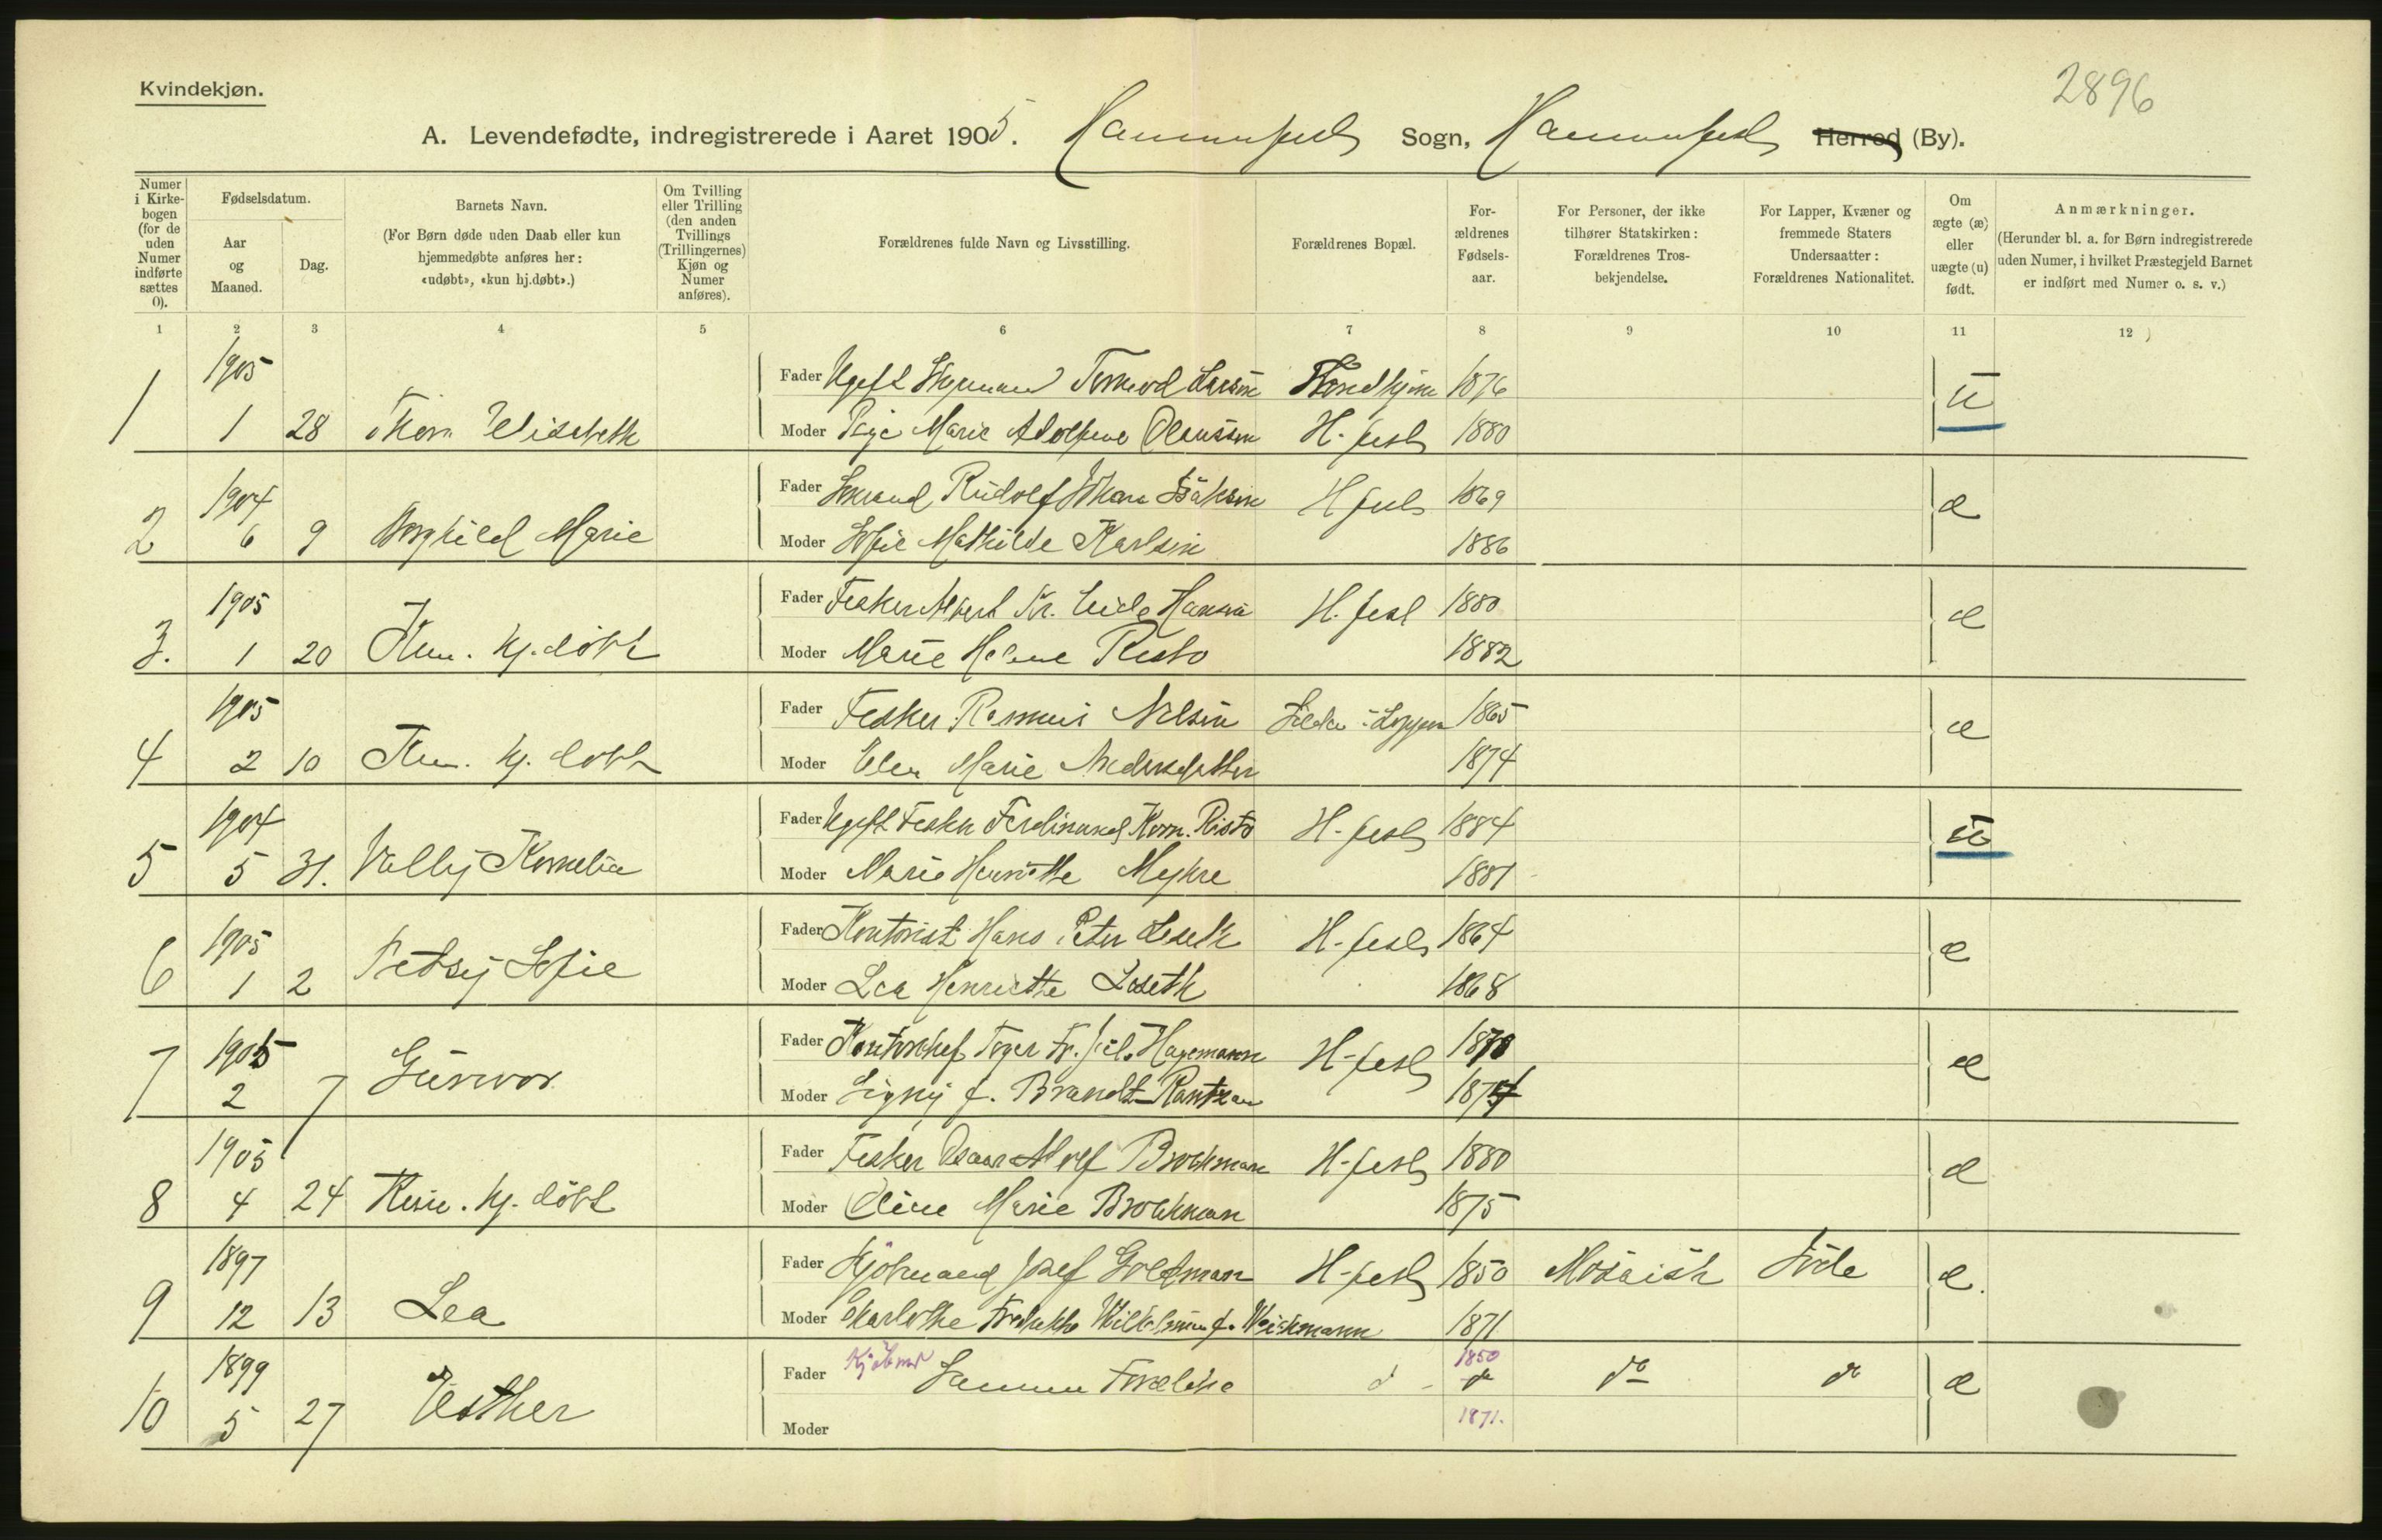 2896
Kvindekjøn.
A. Levendefødte, indregistrerede i Aaret 1905. Hammerfest Sogn, Hammerfest Herred (By).
Numer i Kirkebogen (for de uden Numer indførte sættes 0).
Fødselsdatum.
Aar og Maaned.
Dag.
Barnets Navn.
(For Børn døde uden Daab eller kun hjemmedøbte anføres her: «udøbt», «kun hj.døbt».)
Om Tvilling eller Trilling (den anden Tvillings (Trillingernes) Kjøn og Numer anføres).
Forældrenes fulde Navn og Livsstilling.
Forældrenes Bopæl.
For-ældrenes Fødsels-aar.
For Personer, der ikke tilhører Statskirken: Forældrenes Tros-bekjendelse.
For Lapper, Kvæner og fremmede Staters Undersaatter: Forældrenes Nationalitet.
Om ægte (æ) eller uægte (u) født.
Anmærkninger.
(Herunder bl. a. for Børn indregistrerede uden Numer, i hvilket Præstegjeld Barnet er indført med Numer o. s. v.)
1 2 3 4 5 6 7 8 9 10 11 12
1905
Fader Ugift Tormod Larsen Trondhjem 1876 u
1 1 28 Thora Elisabeth Moder Pige Marie Adolfine Olaussen H-fest 1880
1904
Fader Rudolf Johan Isaksen H fest 1869 æ
2 6 9 Borghild Marie Moder Sofie Mathilde Karlsen 1886
1905
Fader Fisker Albert Kr. Hansen H. fest 1880 æ
3. 1 20 Kun. hj. døbt Moder Marie Helene Risto 1882
1905
Fader Fisker Rasmus Nilsen i Loppen 1865 æ
4 2 10 Kun. hj. døbt Moder Elen Marie Andersdatter 1874
1904
Fader Ugift Fisker Ferdinand Korn. Risto H-fest 1884 u
5 5 31. Vally Kornelia Moder Marie Henriette Mykre 1881
1905
Fader Kontorist Hans Peter Loseth H-fest 1864 æ
6 1 2 Betsy Sofie Moder Lea Henriette Loseth 1868
1905
Fader Kontorchef Fr. Jul. Hagemann H-fest 1870 æ
7 2 7 Gunvor Moder Signy f. Brandt-Rantzau 1874
1905
Fader Fisker Oscar Adolf Brochman H-fest 1880 æ
8 4 24 Kun. hj. døbt Moder Oline Marie Brochman 1875
1897
Fader Kjøbmand Josef Goldman H-fest 1850 Mosaisk Jøde æ.
9 12 13 Lea Moder Charlotte Fredrikke Wilhelmine f. Weichmann 1871
1899
Fader Kjøbmd Samme Forældre d 1850 do do do æ
10 5 27 Esther Moder 1871.